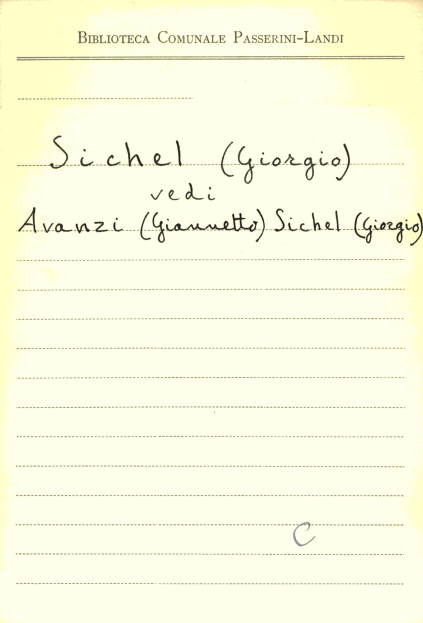 Biblioteca Comunale Passerini-Landi
Sichel (Giorgio)
vedi
Avanzi (Giannetto) Sichel (Giorgio)
C